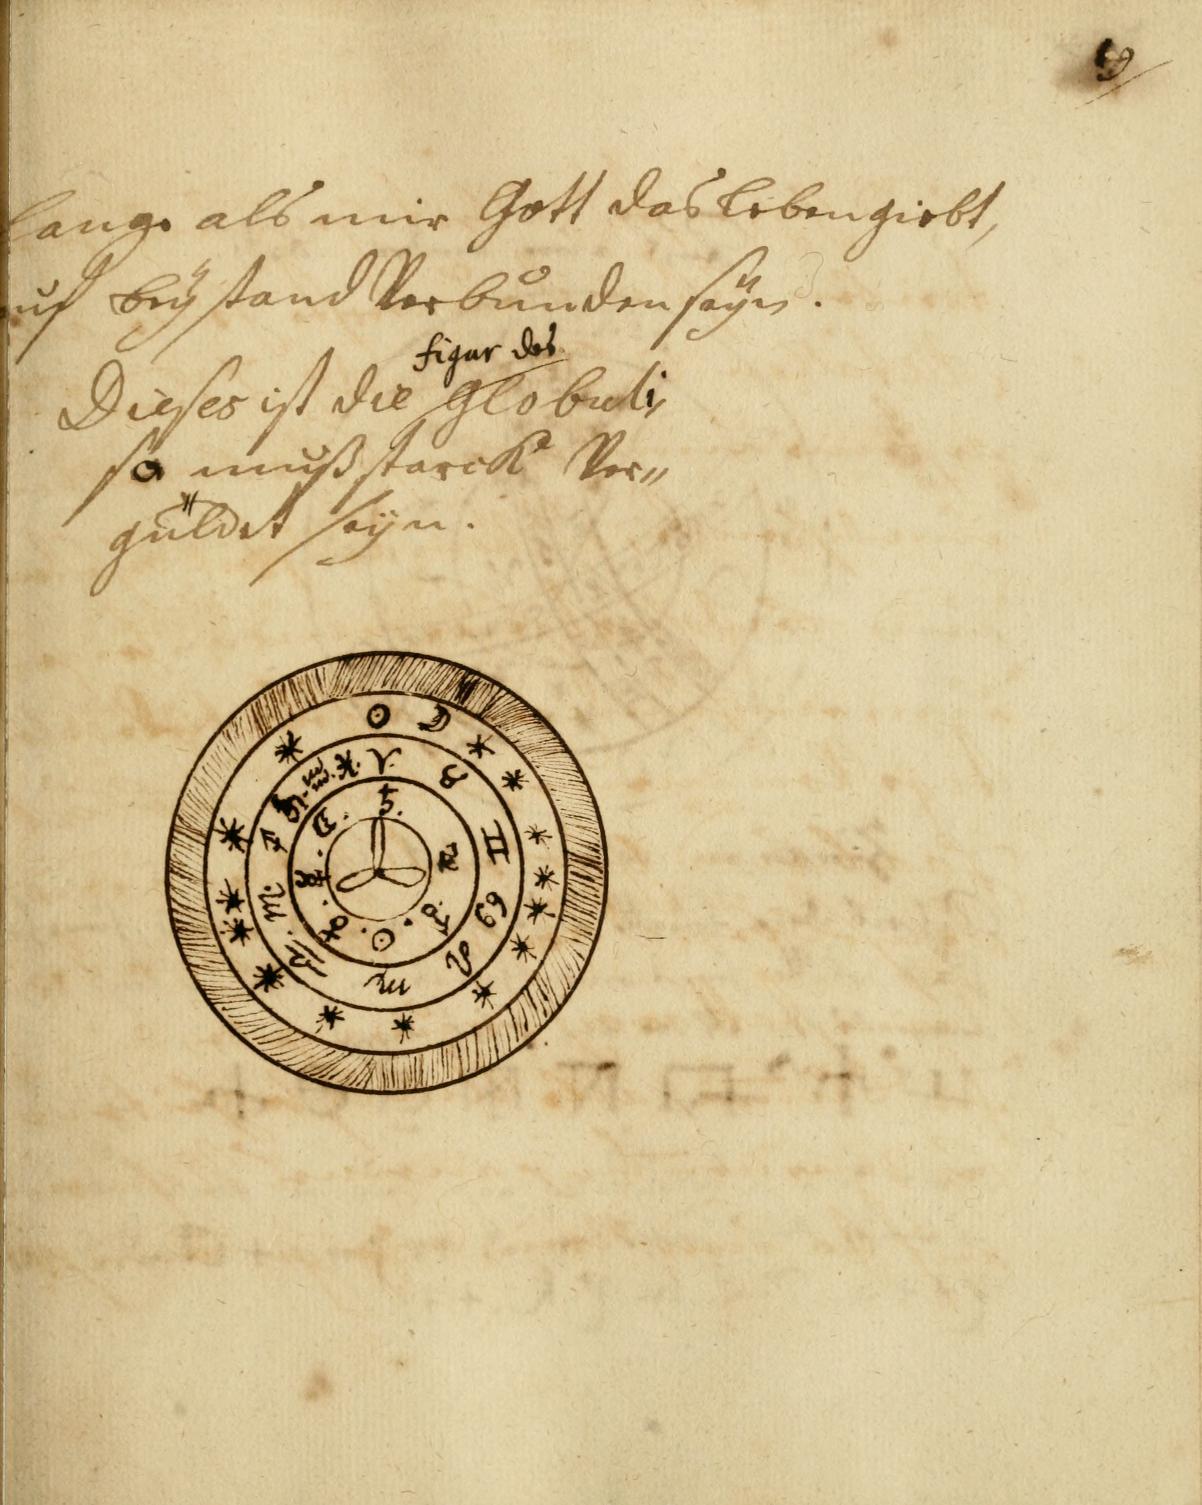 9
lange als mir Gott das leben giebt,
auf beÿstand Verbunden seÿn.
figur des
Dieses ist die Globuli,
so muß starck Ver„
güldet seÿn.
☉ ☾
♊ ♋ ♌ ♍ ♎ ♏
♄ ♃ ♂ ☉ ♀ ☿ ☽